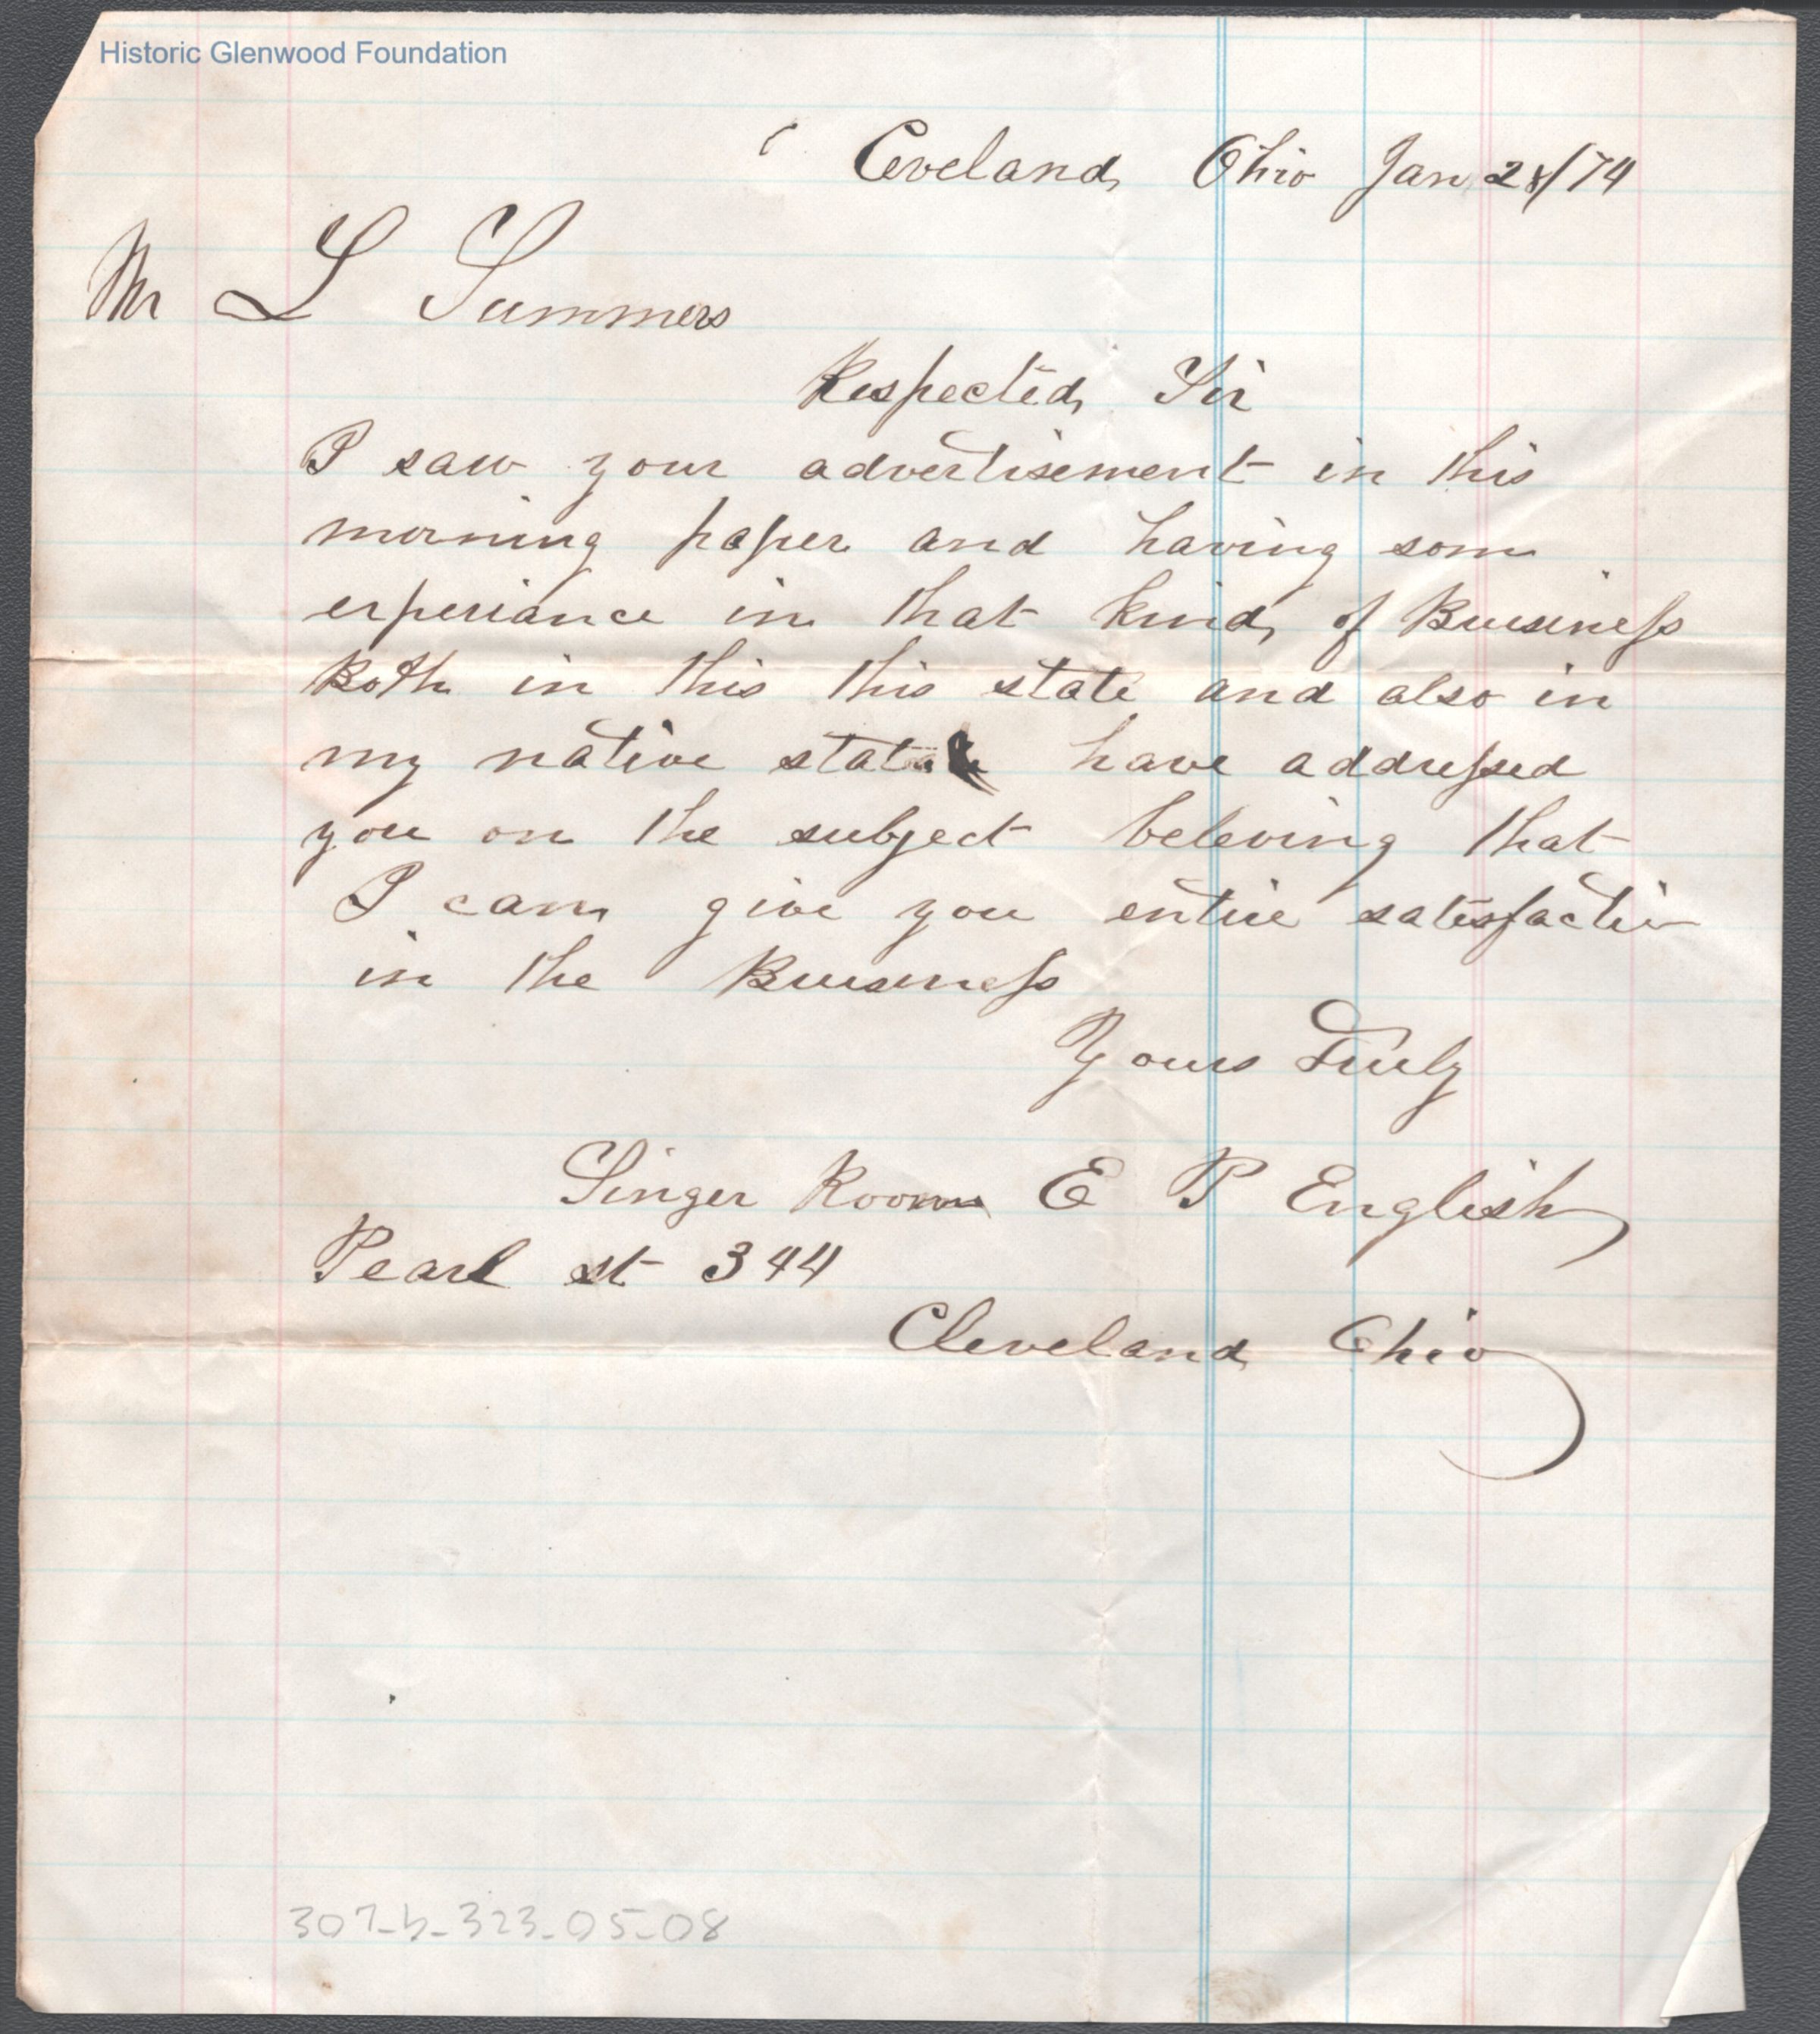 Historic Glenwood Foundation
Ceveland Ohio Jan 28/74
Mr L Summers
Respected Sir
I saw your advertisement in this
morning paper and having som
experiance in that kind of Buusiness
Both in this this state and also in
my native state have addressed
you on the subject beleving that
I can give you entire satisfaction
in the Buusiness
Yours Truly
Singer Rooms E P English
Pearl st 344
Cleveland Ohio
307-b-323-05-08